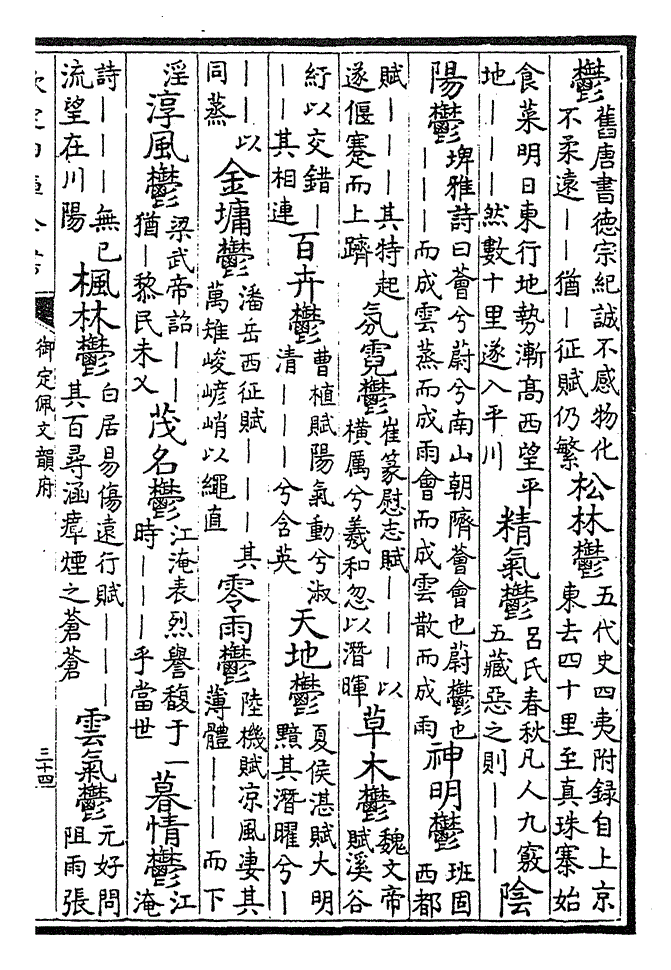 鬱舊唐書德宗紀誠不感物化不柔遠——猶—征賦仍繁松林鬱五代史四夷附録自上京東去四十里至真珠寨始
食菜明日東行地勢漸高西望平地———然數十里遂入平川精氣鬱吕氏春秋凡人九竅五藏惡之則———陰
陽鬱埤雅詩曰薈兮蔚兮南山朝隮薈會也蔚鬱也———而成雲蒸而成雨會而成雲散而成雨神明鬱班固西都
賦———其特起遂偃蹇而上躋氛霓鬱崔篆慰志賦———以橫厲兮羲和忽以潛暉草木鬱魏文帝賦溪谷
紆以交錯———其相連百卉鬱曹植賦陽氣動兮淑清———兮含英天地鬱夏侯湛賦大明黯其潛曜兮—
——以同蒸金墉鬱潘岳西征賦———其萬雉峻嵃峭以繩直零雨鬱陸機賦凉風凄其薄體———而下
淫淳風鬱梁武帝詔——猶—黎民未乂茂名鬱江淹表烈譽馥于一時———乎當世暮情鬱江淹
詩———無已流望在川陽楓林鬱白居易傷遠行賦———其百尋涵瘴煙之蒼蒼雲氣鬱元好問阻雨張
御定佩文韻府
三十四